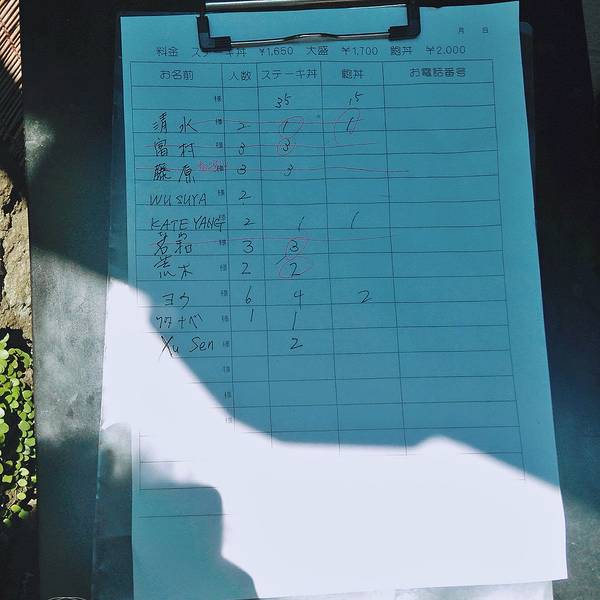 月 日
料金 ステーキ丼 ¥1,650 大盛 ¥1,700 鮑丼 ¥2,000
お名前 人数 ステーキ丼 鮑丼 お電話番号
様 35 15
清水 様 2 1 1
富村 様 3 3
藤原 様 3 3
WUSUYA 様 2
KATE YANG 様 2 1 1
若和 様 3 3
荒木 様 2 2
ヨウ 様 6 4 2
ワタナベ 様 1 1
Xu Sen 様 2
様
様
様